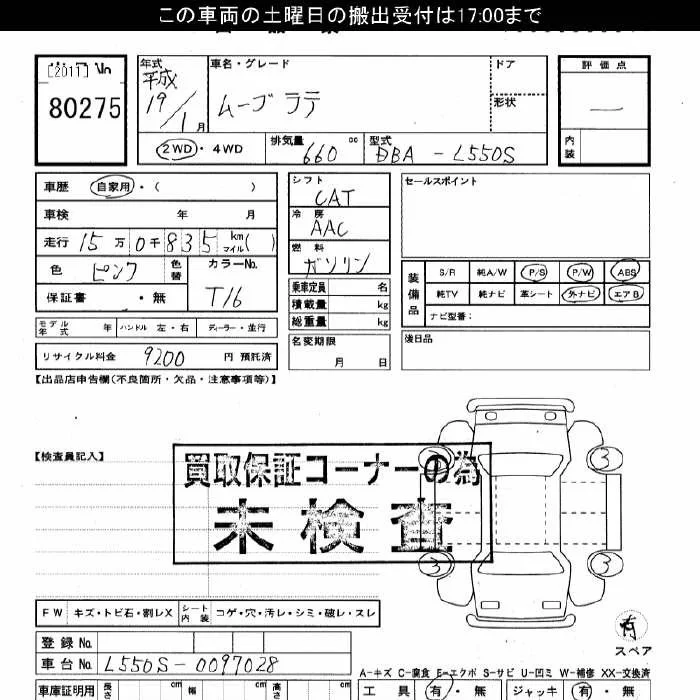 この車両の土曜日の搬出受付は17:00まで
[2011] No
80275
年式
平成
19／1月
車名・グレード
ムーヴ ラテ
ドア
形状
評価点
—
内装
2WD・4WD
排気量 660 cc
型式 DBA - L550S
車歴 自家用・( )
車検 年 月
走行 15万0千835 km マイル( )
色 ピンク 色替
カラーNo. T16
保証書 ・無
モデル年式 年 ハンドル 左・右 ディーラー・並行
リサイクル料金 9200 円 預託済
シフト
CAT
冷房
AAC
燃料
ガソリン
乗車定員 名
積載量 kg
総重量 kg
名変期限
月 日
セールスポイント
装備品
S/R 純A/W P/S P/W ABS
純TV 純ナビ 革シート 外ナビ エアB
ナビ型番：
後日品
【出品店申告欄(不良箇所・欠品・注意事項等)】
【検査員記入】
買取保証コーナーの為
未検査
3 3
3 3
有
スペア
FW キズ・トビ石・割レX シート内装 コゲ・穴・汚レ・シミ・破レ・スレ
登録 No.
車台 No. L550S-0097028
A-キズ C-腐食 E-エクボ S-サビ U-凹ミ W-補修 XX-交換済
車庫証明用 長さ cm 幅 cm 高さ cm
工具 有・無 ジャッキ 有・無